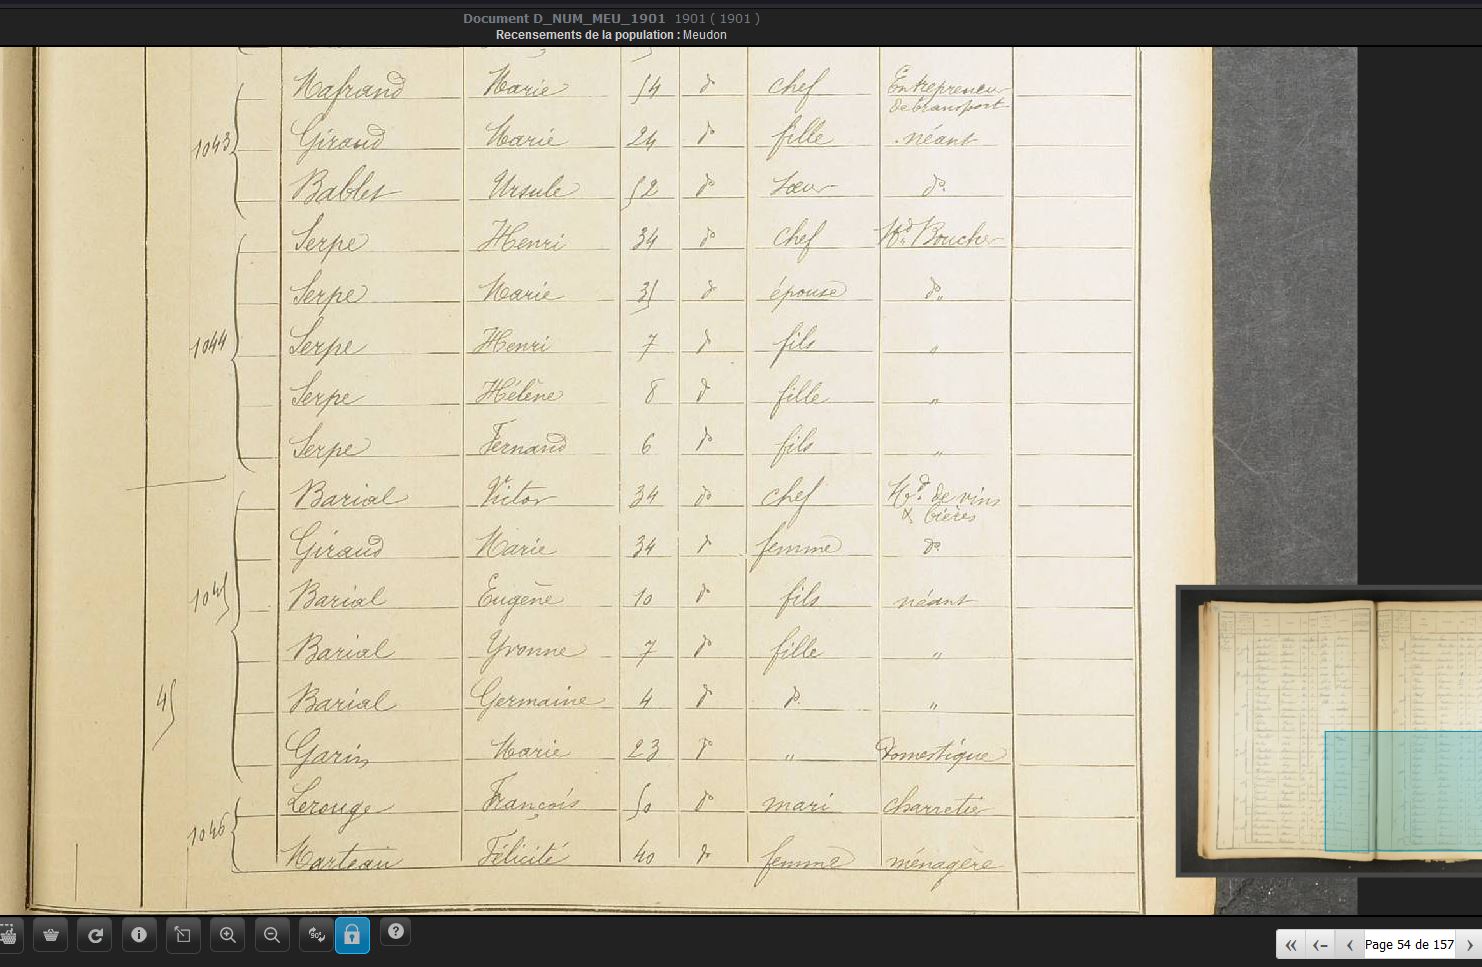 Document D_NUM_MEU_1901 1901 ( 1901 )
Recensements de la population : Meudon
Mafrand Marie 54 do chef Entrepreneur
de transport
1043 Giraud Marie 24 do fille néant
Bablet Ursule 52 do sœur do
Serpe Henri 34 do chef Md Boucher
Serpe Marie 35 do épouse do
1044 Serpe Henri 7 do fils "
Serpe Hélène 8 do fille "
Serpe Fernand 6 do fils "
Barial Victor 34 do chef Md de vins
& bières
Giraud Marie 34 do femme do
1045 Barial Eugène 10 do fils néant
Barial Yvonne 7 do fille "
45 Barial Germaine 4 do do "
Garin Marie 23 do " Domestique
Lerouge François 50 do mari charretier
1046
Marteau Félicité 40 do femme ménagère
90°
Page 54 de 157